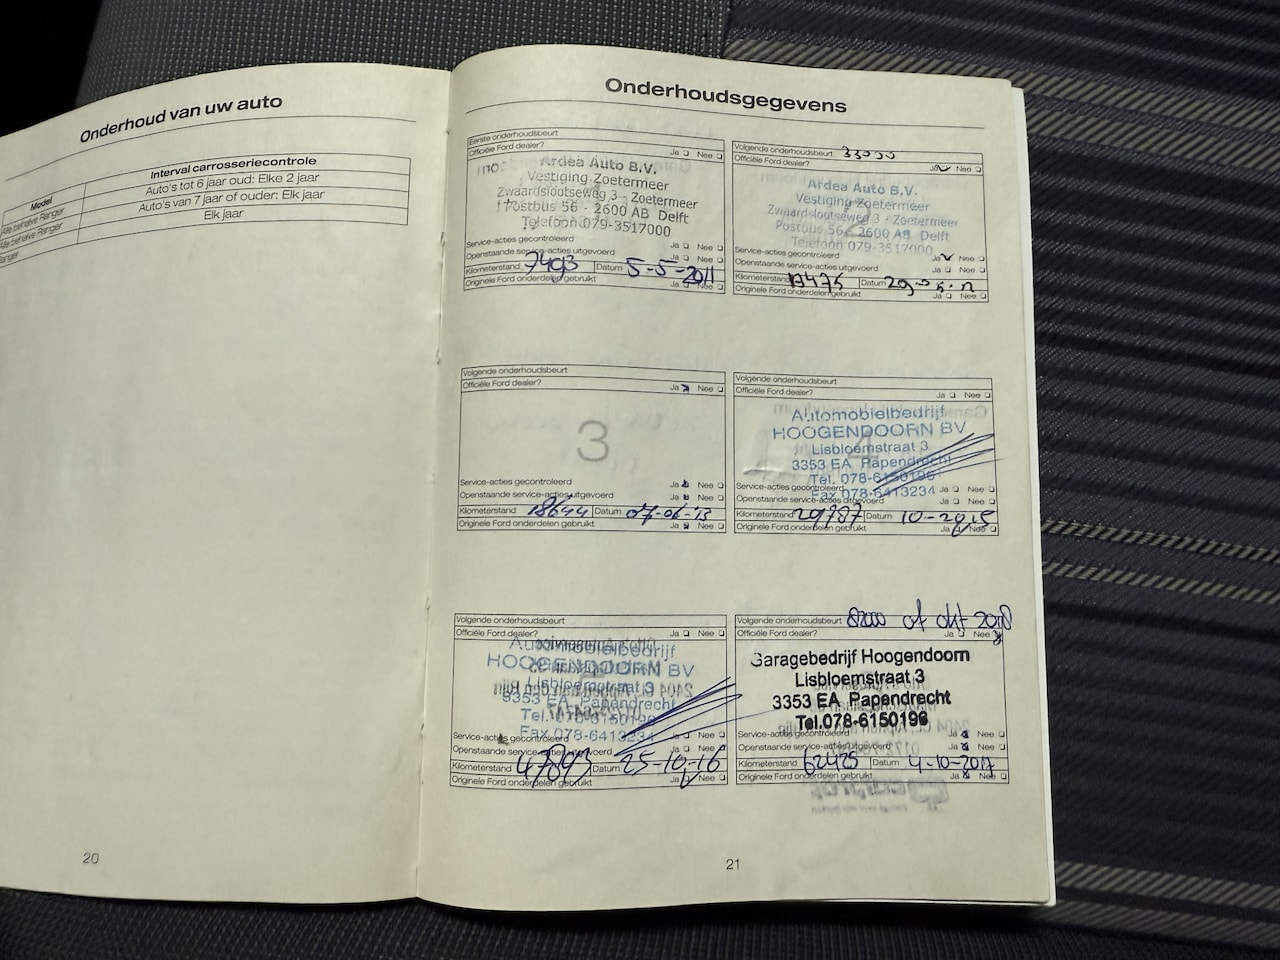 Onderhoud van uw auto
Interval carrosseriecontrole
Model
Auto's tot 6 jaar oud: Elke 2 jaar
Alle behalve Ranger
Auto's van 7 jaar of ouder: Elk jaar
Alle behalve Ranger
Elk jaar
Ranger
20
Onderhoudsgegevens
Eerste onderhoudsbeurt
Officiële Ford dealer?
Ja Nee
Ardea Auto B.V.
Vestiging Zoetermeer
Zwaardslootseweg 3 - Zoetermeer
Postbus 56 - 2600 AB Delft
Telefoon 079-3517000
Service-acties gecontroleerd Ja Nee
Openstaande service-acties uitgevoerd Ja Nee
Kilometerstand 7493 Datum 5-5-2011
Originele Ford onderdelen gebruikt Ja Nee
Volgende onderhoudsbeurt 33000
Officiële Ford dealer?
Ja Nee
2
Ardea Auto B.V.
Vestiging Zoetermeer
Zwaardslootseweg 3 - Zoetermeer
Postbus 56 - 2600 AB Delft
Telefoon 079-3517000
Service-acties gecontroleerd Ja Nee
Openstaande service-acties uitgevoerd Ja Nee
Kilometerstand Datum
Originele Ford onderdelen gebruikt Ja Nee
Volgende onderhoudsbeurt
Officiële Ford dealer?
Ja Nee
3
Service-acties gecontroleerd Ja Nee
Openstaande service-acties uitgevoerd Ja Nee
Kilometerstand 18644 Datum 07-06-13
Originele Ford onderdelen gebruikt Ja Nee
Volgende onderhoudsbeurt
Officiële Ford dealer?
Ja Nee
4
Automobielbedrijf
HOOGENDOORN BV
Lisbloemstraat 3
3353 EA Papendrecht
Tel. 078-6150196
Fax 078-6413234
Service-acties gecontroleerd Ja Nee
Openstaande service-acties uitgevoerd Ja Nee
Kilometerstand 29787 Datum 10-2015
Originele Ford onderdelen gebruikt Ja Nee
Volgende onderhoudsbeurt
Officiële Ford dealer?
Ja Nee
Automobielbedrijf
HOOGENDOORN BV
Lisbloemstraat 3
3353 EA Papendrecht
Tel. 078-6150196
Fax 078-6413234
Service-acties gecontroleerd Ja Nee
Openstaande service-acties uitgevoerd Ja Nee
Kilometerstand 47893 Datum 25-10-16
Originele Ford onderdelen gebruikt Ja Nee
Volgende onderhoudsbeurt 82000 of okt 2018
Officiële Ford dealer?
Ja Nee
Garagebedrijf Hoogendoorn
Lisbloemstraat 3
3353 EA Papendrecht
Tel.078-6150196
Service-acties gecontroleerd Ja Nee
Openstaande service-acties uitgevoerd Ja Nee
Kilometerstand 62425 Datum 4-10-2017
Originele Ford onderdelen gebruikt Ja Nee
21